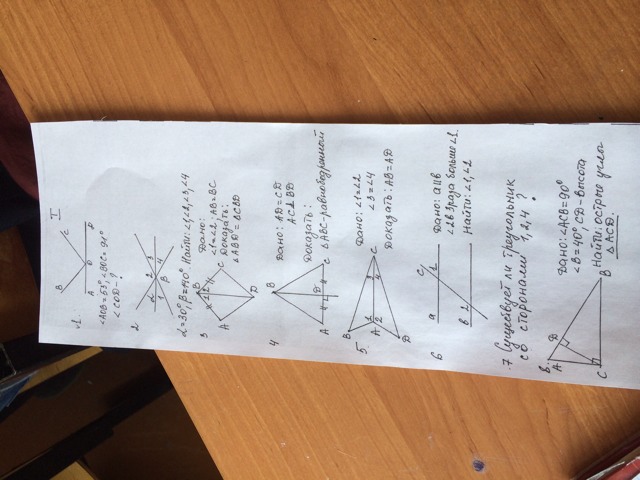 I
1.
B C
A O D
∠AOB=53°, ∠BOC=91°
∠COD-?
2
α 2 3
1 β 4
α=30°, β=140°. Найти: ∠1,∠2,∠3,∠4
3
B
1 2
A C
D
Дано:
∠1=∠2, AB=BC
Доказать:
∠ABD=∠CBD
4
B
A D C
Дано: AD=CD
AC⊥BD
Доказать:
△ABC-равнобедренный
5
B
A C
D
1 2
3 4
Дано: ∠1=∠2
∠3=∠4
Доказать: AB=AD
6
a c
2
b 1
Дано: a∥b
∠2 в 3 раза больше ∠1.
Найти: ∠1,∠2
.7 Существует ли треугольник
со сторонами 1, 2, 4 ?
8.
A D
C B
Дано: ∠ACB=90°
∠B=40° CD-высота
Найти: острые углы
△ACD.